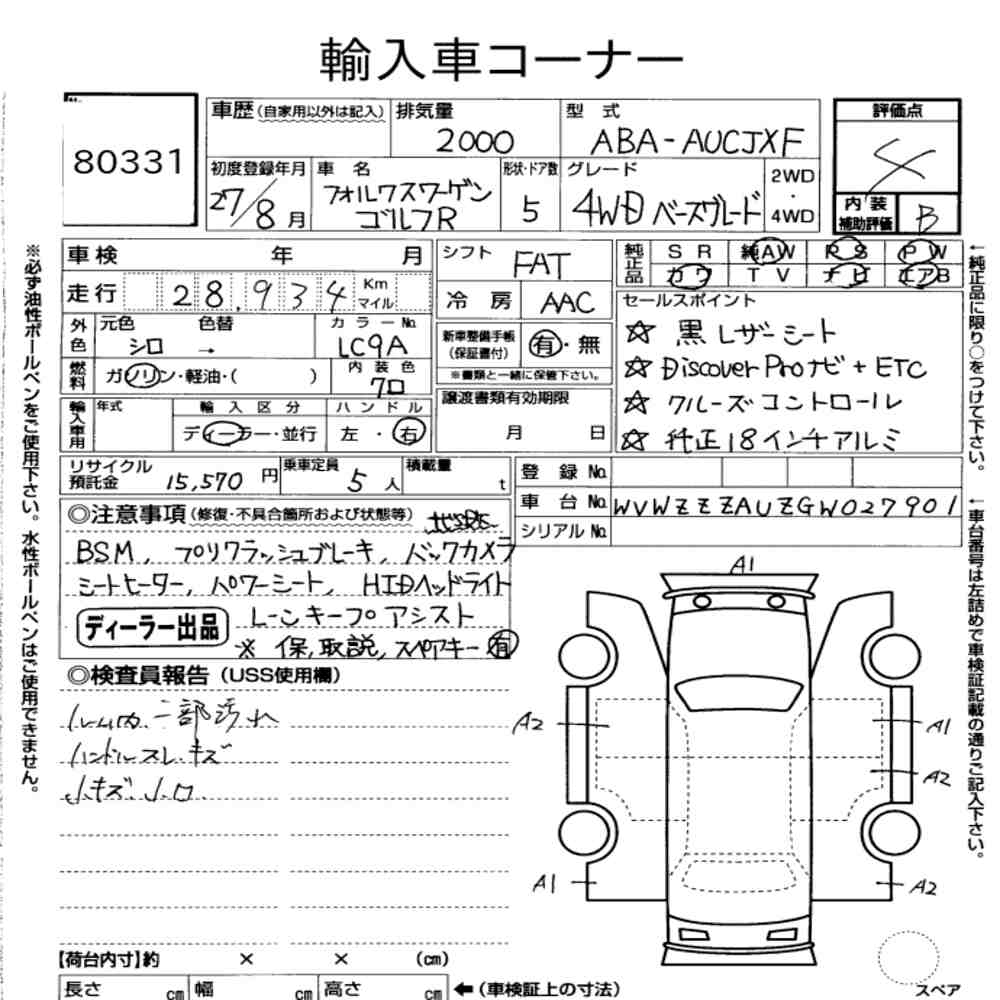 輸入車コーナー
80331
車歴（自家用以外は記入） 排気量 2000 型式 ABA-AUCJXF
初度登録年月 27/8月 車名 フォルクスワーゲン ゴルフR 形状・ドア数 5 グレード 4WD ベースグレード 2WD・4WD
評価点 4
内装補助評価 B
車検 年 月
走行 28,934 Km マイル
外色 元色 シロ 色替 → カラーNo. LC9A
燃料 ガソリン・軽油・( ) 内装色 クロ
輸入車用 年式 輸入区分 ディーラー・並行 ハンドル 左・右
シフト FAT
冷房 AAC
新車整備手帳（保証書付） 有・無
※書類と一緒に保管下さい。
譲渡書類有効期限 月 日
純正品 SR 純AW RS PW
カワ TV ナビ エアB
セールスポイント
☆ 黒レザーシート
☆ Discover Proナビ+ETC
☆ クルーズコントロール
☆ 純正18インチアルミ
リサイクル預託金 15,570円 乗車定員 5人 積載量 t
登録No.
車台No. WVWZZZAUZGW027901
シリアルNo.
◎注意事項（修復・不具合箇所および状態等）
BSM, プリクラッシュブレーキ, バックカメラ
シートヒーター, パワーシート, HIDヘッドライト
ディーラー出品 レーンキープアシスト
※ 保,取説,スペアキー有
◎検査員報告（USS使用欄）
ルーム内一部汚れ
ハンドルスレ・キズ
小キズ小凹
A1
A2 A1
A2
A1 A2
【荷台内寸】約 × × (cm)
長さ cm 幅 cm 高さ cm ←（車検証上の寸法）
スペア
※必ず油性ボールペンをご使用下さい。水性ボールペンはご使用できません。
←純正品に限り○をつけて下さい。
←車台番号は左詰めで車検証記載の通りご記入下さい。